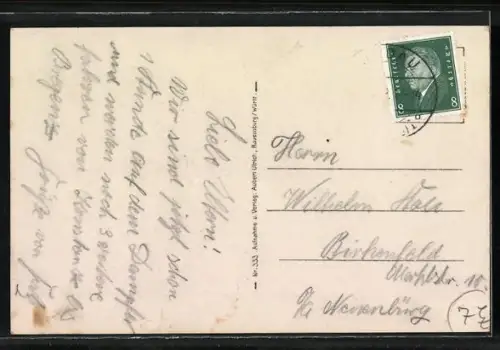 Liebe Eltern!
Wir sind jetzt schon
1 Stunde auf dem Dampfer
und werden noch 3 weitere
fahren von Konstanz bis
Bregenz
Grüße von
Nr. 333 Aufnahme u. Verlag: Ravensburg/Württ.
DEUTSCHES REICH
8 8
Herrn
Wilhelm
Birkenfeld
10
Neuenbürg